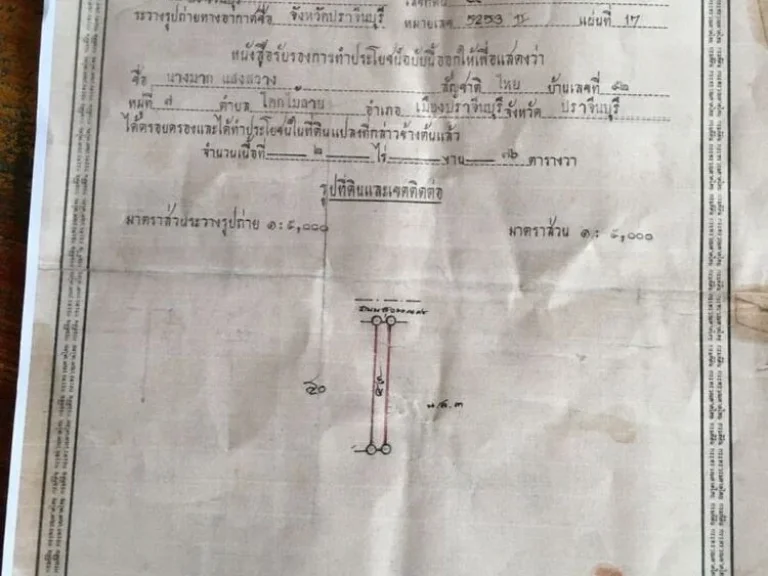 ระวางรูปถ่ายทางอากาศชื่อ จังหวัดปราจีนบุรี หมายเลข 5253 II แผ่นที่ 17
หนังสือรับรองการทำประโยชน์ฉบับนี้ออกให้เพื่อแสดงว่า
ชื่อ นางมาก แสงสวาง สัญชาติ ไทย บ้านเลขที่ ๕๒
หมู่ที่ ๗ ตำบล โคกไม้ลาย อำเภอ เมืองปราจีนบุรี จังหวัด ปราจีนบุรี
ได้ครอบครองและได้ทำประโยชน์ในที่ดินแปลงที่กล่าวข้างต้นแล้ว
จำนวนเนื้อที่ ๒ ไร่ งาน ๗๖ ตารางวา
รูปที่ดินและเขตติดต่อ
มาตราส่วนระวางรูปถ่าย ๑:๕,๐๐๐ มาตราส่วน ๑:๕,๐๐๐
๔๐
น.ส.๓